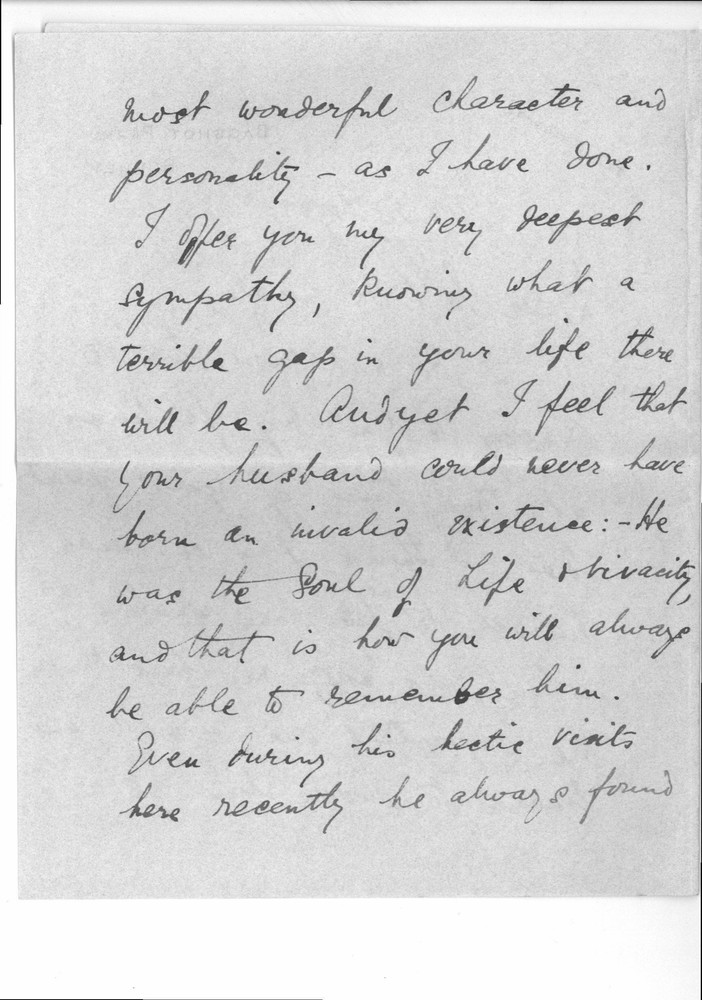 most wonderful character and
personality - as I have done.
I offer you my very deepest
sympathy, knowing what a
terrible gap in your life there
will be. And yet I feel that
your husband could never have
born an invalid existence: - He
was the Soul of Life & vivacity,
and that is how you will always
be able to remember him.
Even during his hectic visits
here recently he always found